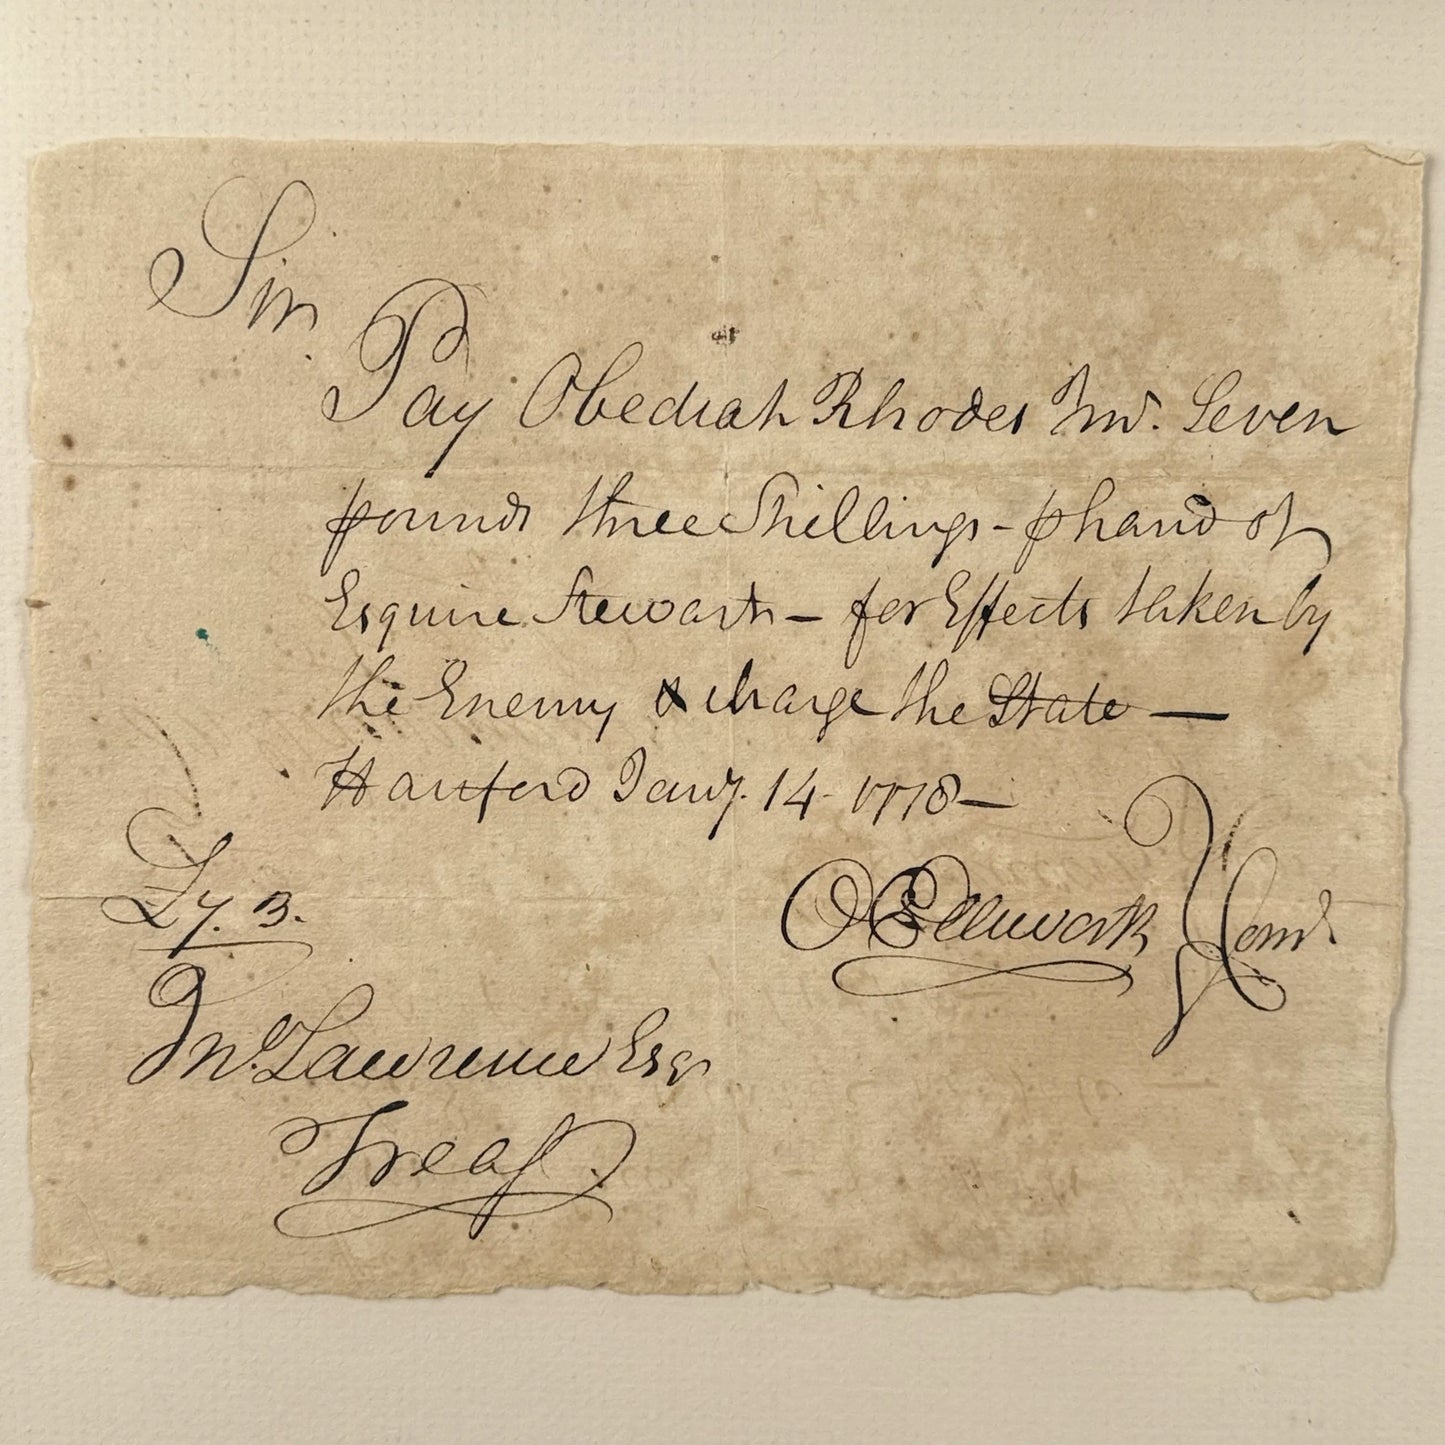 Sir
Pay Obediah Rhodes Junr. Seven
pounds three Shillings - p hand of
Esquire Stewart - for Effects taken by
the Enemy & charge the State -
Hartford Jany. 14 - 1778 -
O Ellsworth } Comt.
Jno. Lawrence Esqr
Treasr.